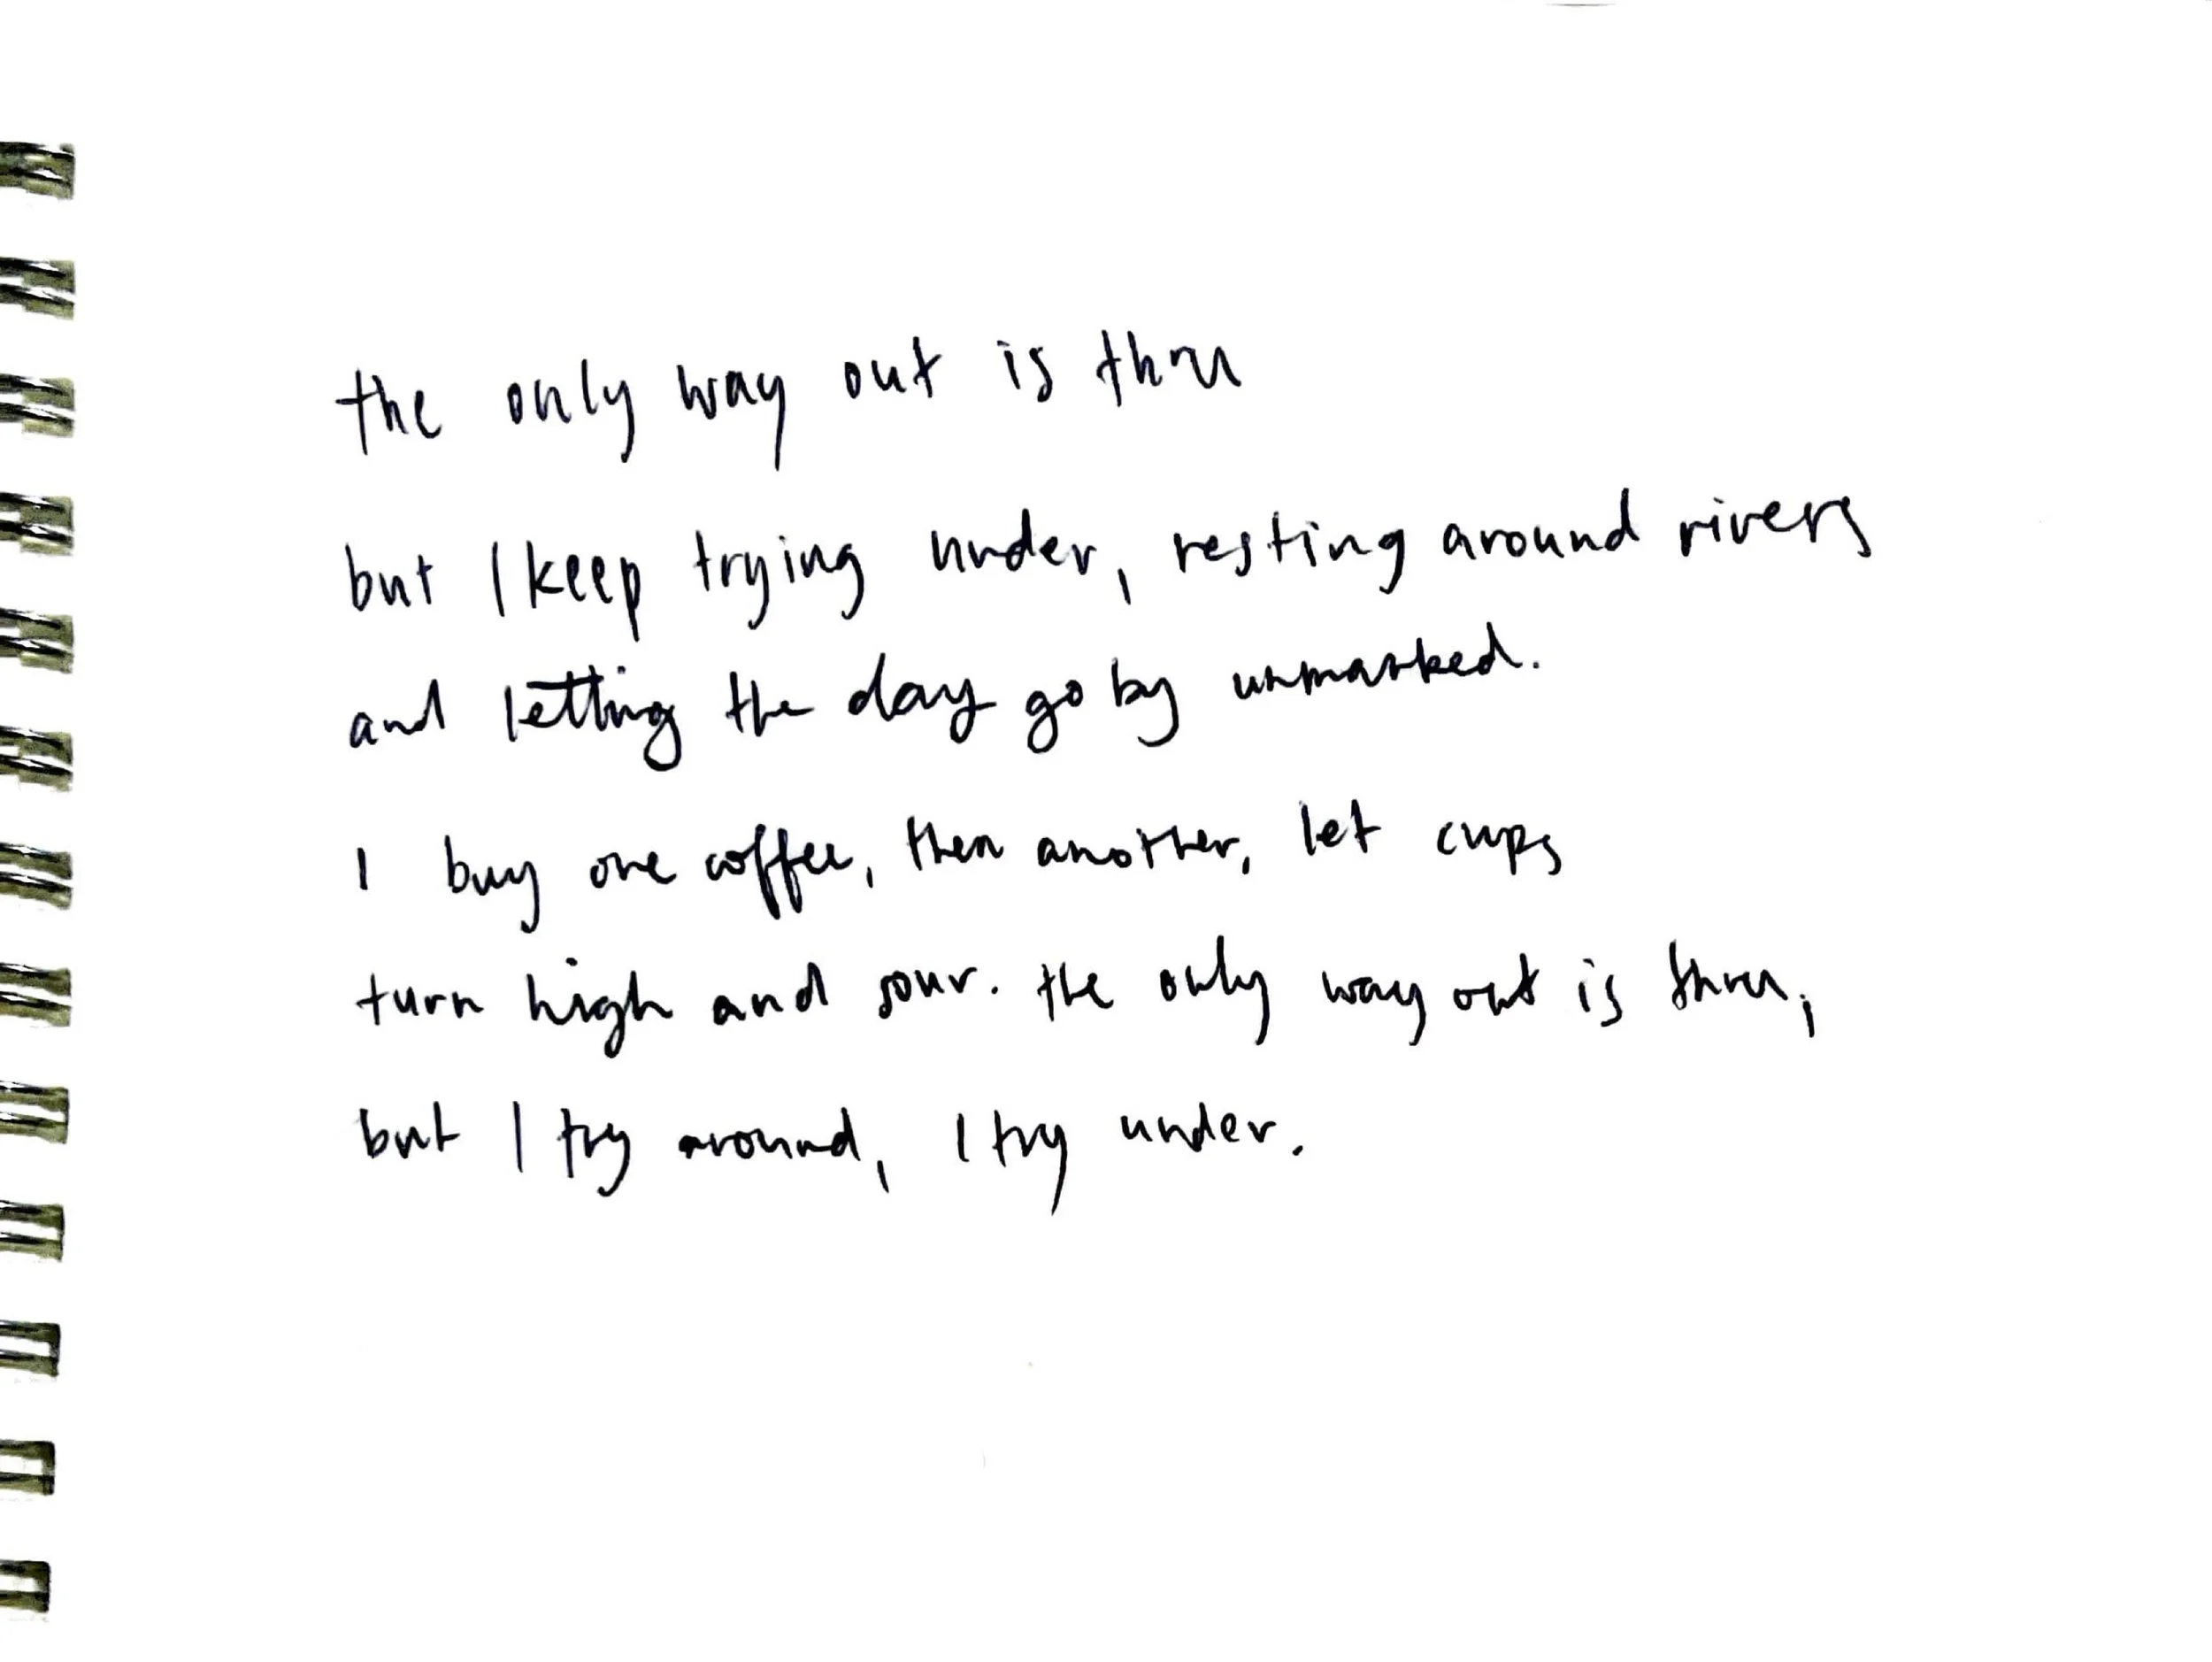 the only way out is thru
but I keep trying under, resting around rivers
and letting the day go by unmarked.
I buy one coffee, then another, let cups
turn high and sour. the only way out is thru,
but I try around, I try under.